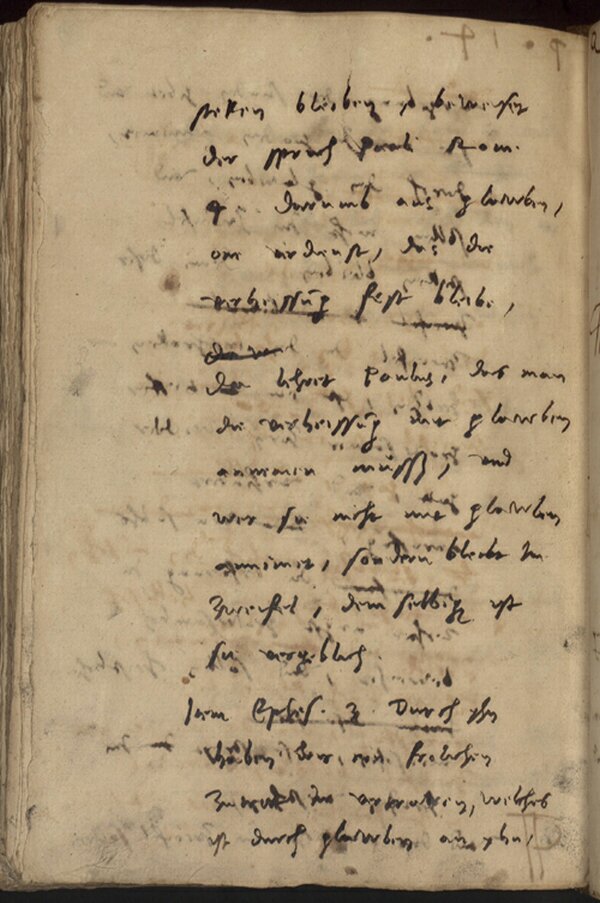 steken bleiben, beweiset
der spruch Pauli Rom.
4 Darumb aus glawben,
on verdienst, das die
verheissung fest bleibe,
Da leret Paulus, das man
die verheissung mit glawben
annemen müsse, und
wer sie nicht mit glawben
annimet, sondern bleibt im
zweifel, dem selbigen ist
sie vergeblich.
Item Ephes. 3 Durch yhn
haben wir ein frolichen
zutrit im vertrawen, welchs
ist durch glawben an yhn,